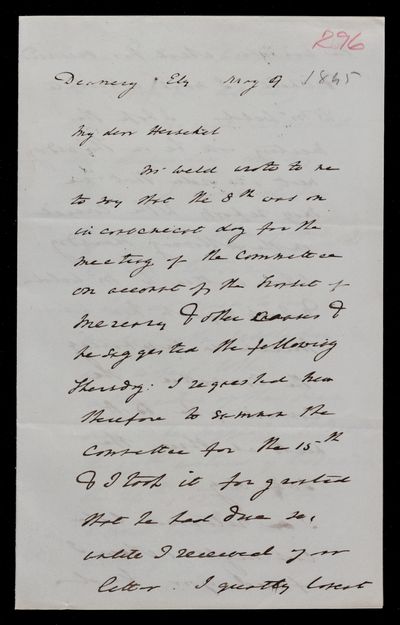 296
Deanery Ely May 9 1845
My dear Herschel
Mr Weld wrote to me
to say that the 8th was an
inconvenient day for the
meeting of the Committee
on account of the Transit of
Mercury & other causes &
he suggested the following
Thursday: I requested him
therefore to summon the
Committee for the 15th
& I took it for granted
that he had done so,
until I received your
letter. I greatly lament